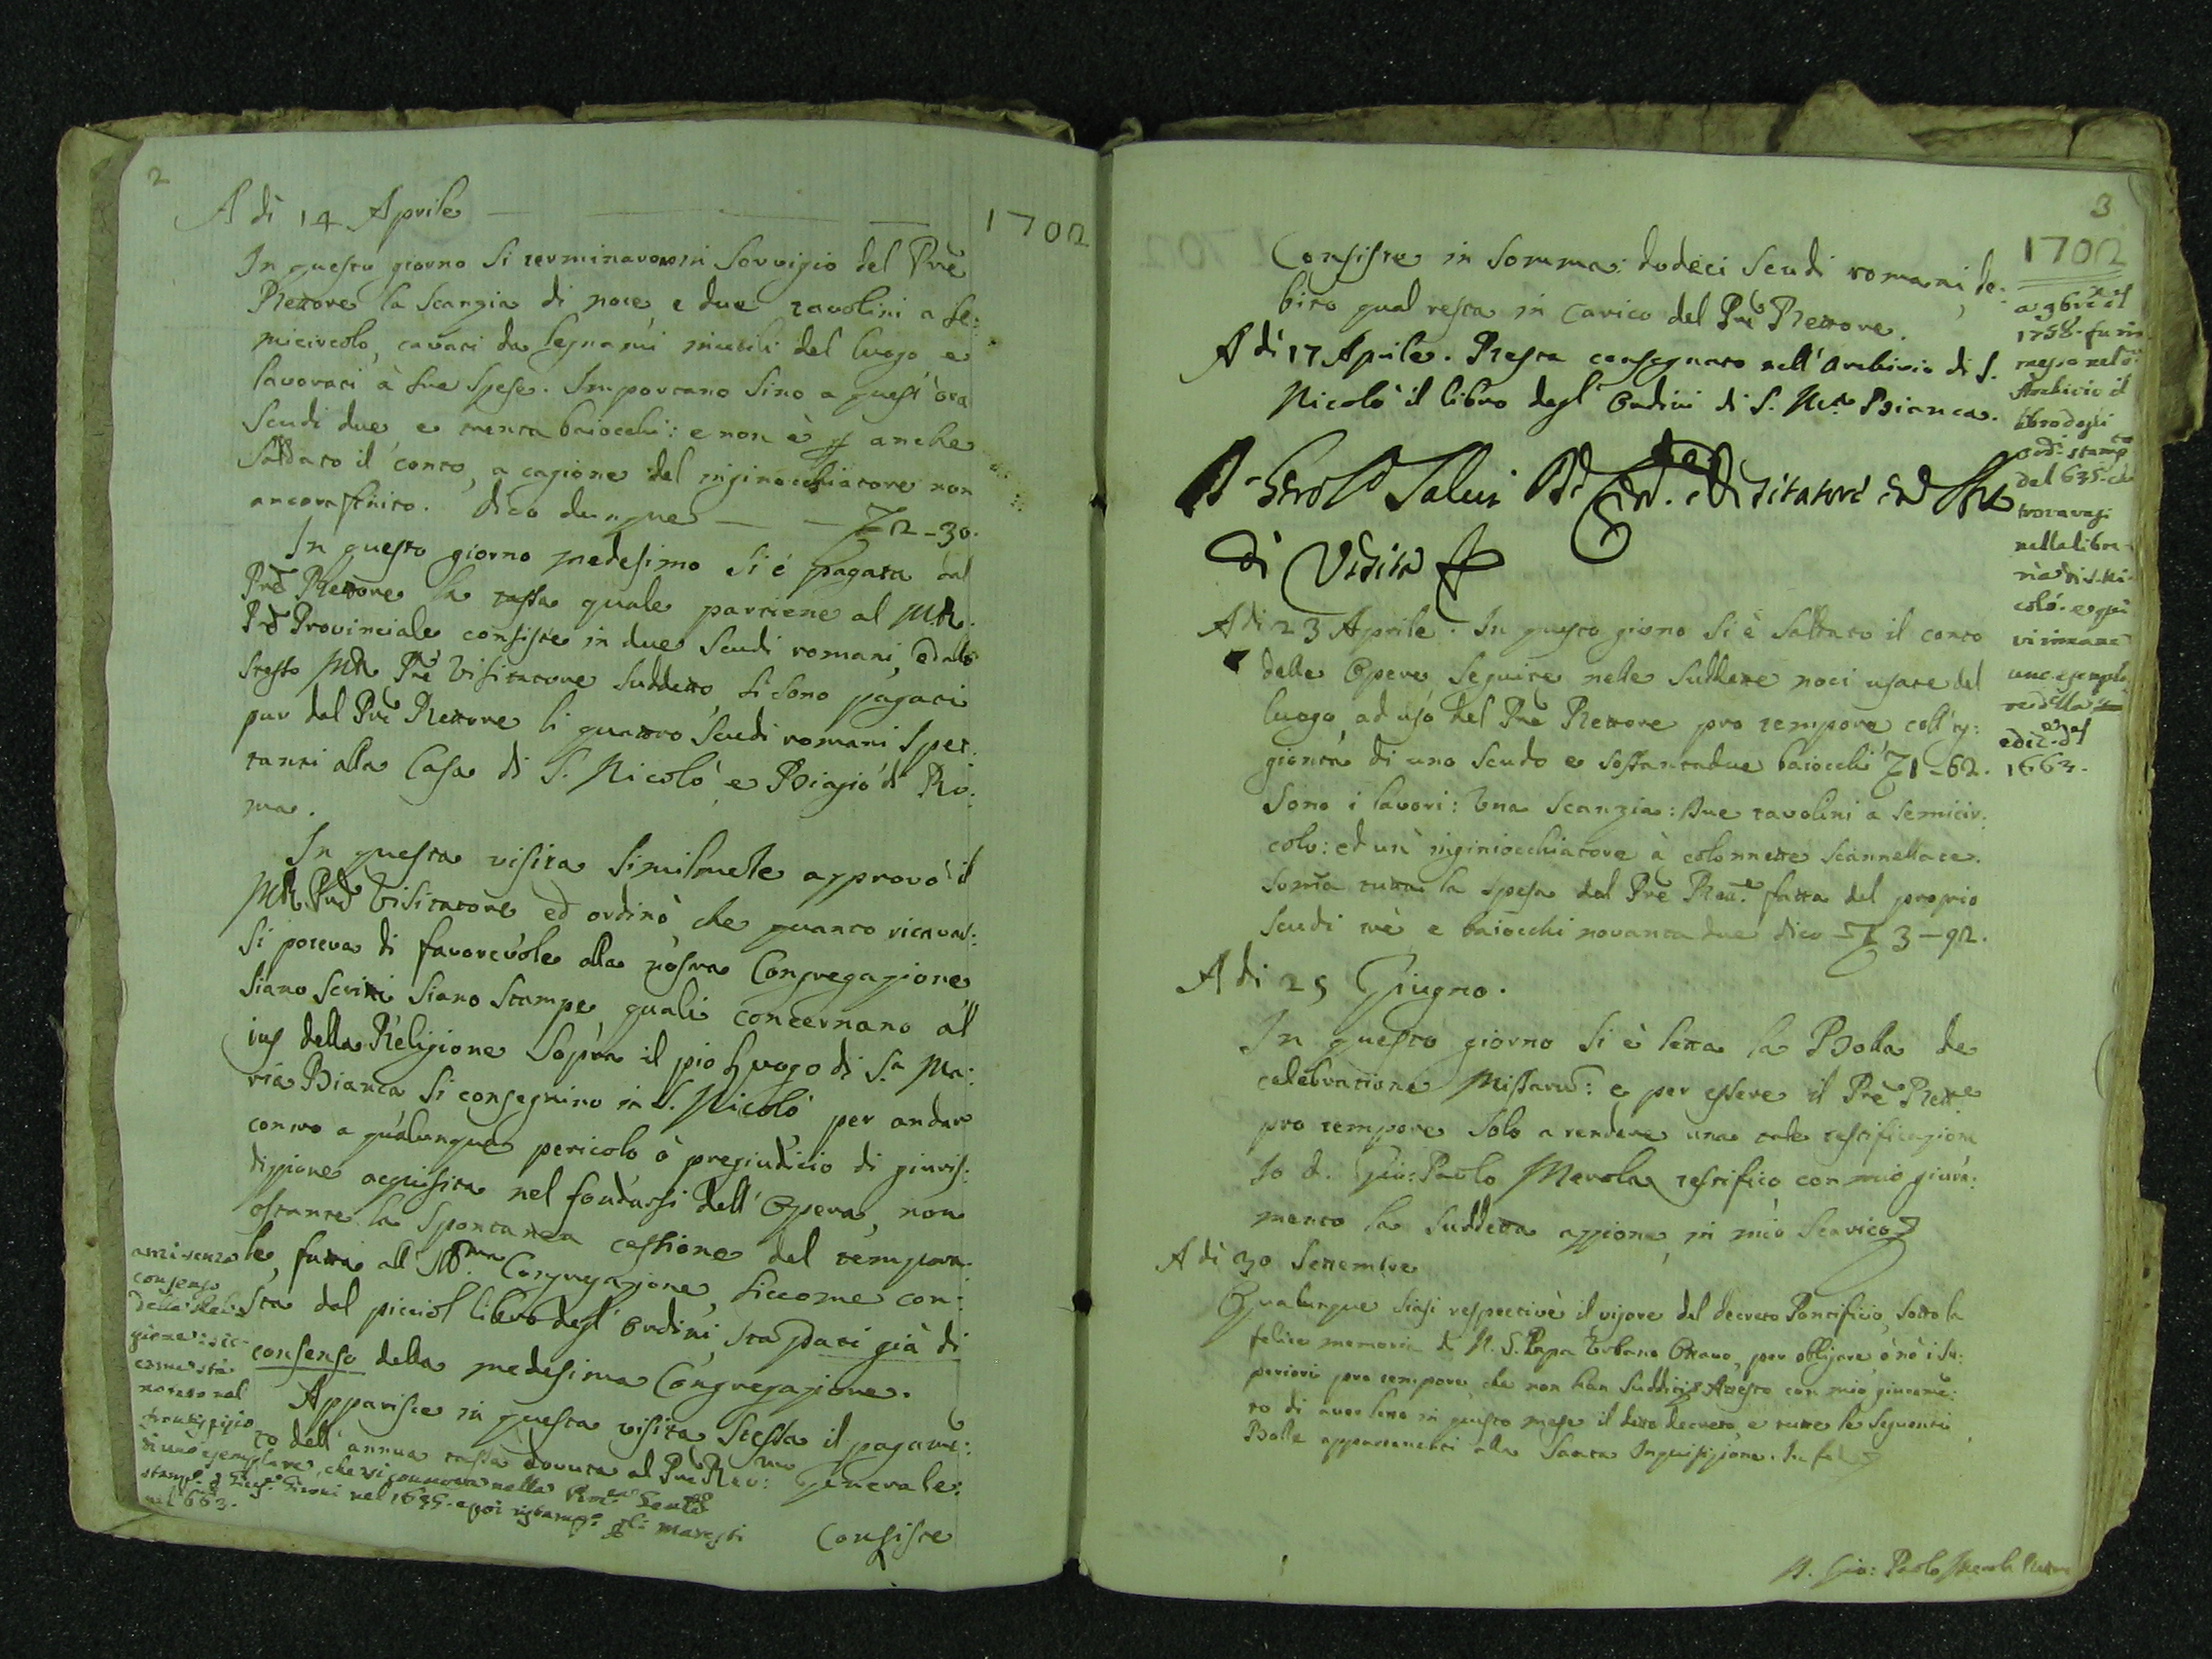 2
A di 14 Aprile
1702
In questo giorno si terminarono in servigio del Prē
Rettore la scanzia di noce e due tavolini a se:
micircolo, cavati da legnami inutili del luogo e
lavorati à sue spese. Importano sino a quest'ora
Scudi due e trenta baiocchi: e non è anche
saldato il conto, a cagione del inginocchiatore non
ancora finito. Dico dunque — — 2-30.
In questo giorno medesimo si è pagata dal
Prē Rettore la tassa quale partiene al MR.
Prē Provinciale consiste in due scudi romani, ed allo
stesso MR Prē Visitatore suddetto si sono pagati
pur dal Prē Rettore li quattro scudi romani spet:
tanti alla Casa di S. Nicolò e Biagio di Ro:
ma.
In questa visita similmēte approvò il
MR Prē Visitatore ed ordinò che quanto ricavar:
si poteva di favorevole alla nostra Congregazione
siano scritti siano stampe quali concernano al
ius della Religione sopra il pio Luogo di S.a Ma:
ria Bianca si consegnino in S. Nicolò per andar
contro a qualunque pericolo ò pregiudicio di giuris:
dizione acquisita nel fondarsi dell'Opera, non
ostante la spontanea cessione del tempora:
le, fatta all' Congregazione, siccome con:
sta dal picciol libro degl'ordini, stapati già di
consenso della medesima Congregazione.
Apparisce in questa visita stessa il pagamē:
to dell'annua tassa dovuta al Prē Rev:mo Generale:
Consiste
anzi senza
consenso
della Reli-
gione: sic-
come sta
notato nel
frontispizio
di uno esemplare, che si conserva nella
stamp. Gironi nel 1635. e poi ristamp. Maresti
nel 663.
3
1702
Consiste in somma: dodeci scudi romani, de:
bito qual resta in carico del Prē Rettore.
A di 17 Aprile. Resta consegnato nell'Archivio di S.
Nicolò il libro degl'Ordini di S. Ma Bianca.
Salvi Visitatore
di Visita
A di 23 Aprile. In questo giorno si è saldato il conto
delle Opere seguite nelle suddette noci usate del
luogo ad uso del Prē Rettore pro tempore coll'ag:
gionta di uno scudo e sessantadue baiocchi 1-62.
Sono i lavori: Una scanzia: Due tavolini a semicir:
colo: ed un' inginiocchiatore à colonnette scannellate.
Soma tutta la spesa dal Prē Rett.e fatta del proprio
scudi trè e baiocchi novanta due dico — 3-92.
A di 25 Giugno.
In questo giorno si è letta la Bolla de
celebratione Missarū: e per essere il Prē Rett.e
pro tempore solo a rendere una tale testificazione
Io d. Gio: Paolo Merola testifico con mio giura:
mento la suddetta azzione, in mio scarico
A di 30 Settembre
Qualunque siasi respective il vigore del decreto Pontificio, sotto la
felice memoria di N. S. Papa Urbano Ottavo, per obligare ò nò i Su:
periori pro tempore che non han sudditi, Attesto con mio giuramē:
to di aver letto in questo mese il ditto decreto, e tutte le seguenti
Bolle appartenenti alla Santa Inquisizione. In fede
D. Gio: Paolo Merola Rettore
a 9bre del
1758. fu ri
messo nel
Archivio il
libro degli
ordi. stamp.to
del 635. che
trovavasi
nella libre-
ria di S. Ni-
colò. e qui
vi rimane
un esempla
re della
ediz.e del
1663.